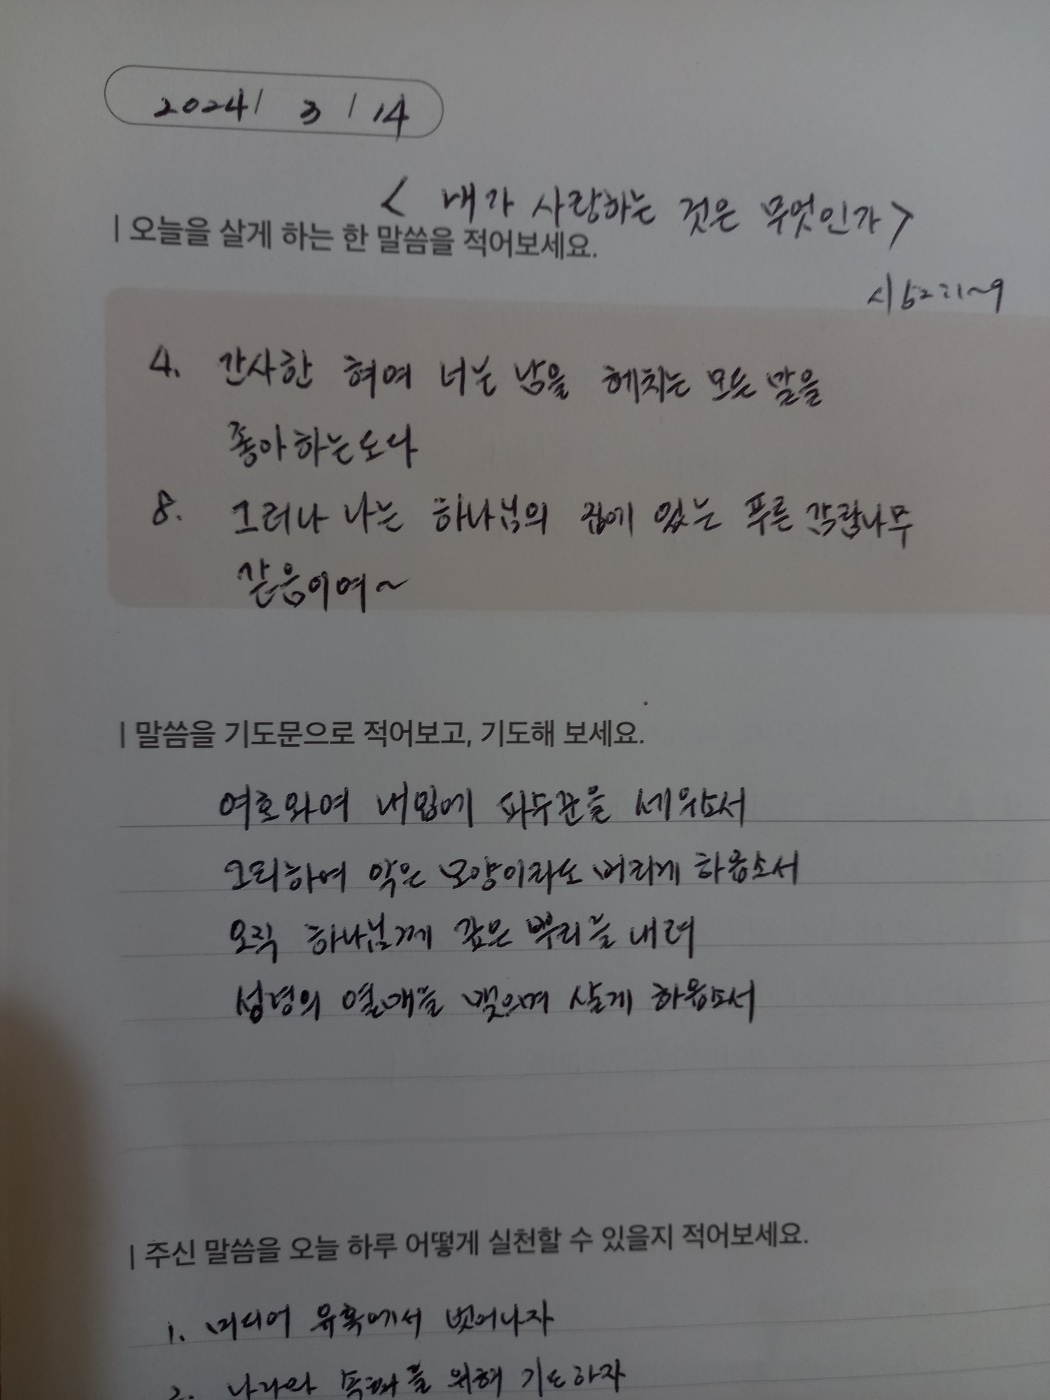 2024 / 3 / 14
< 내가 사랑하는 것은 무엇인가 >
| 오늘을 살게 하는 한 말씀을 적어보세요.
시 52:1~9
4. 간사한 혀여 너는 남을 헤치는 모든 말을
좋아하는도다
8. 그러나 나는 하나님의 집에 있는 푸른 감람나무
같음이여~
| 말씀을 기도문으로 적어보고, 기도해 보세요.
여호와여 내입에 파수꾼을 세우소서
그리하여 악은 모양이라도 버리게 하옵소서
오직 하나님께 깊은 뿌리를 내려
성령의 열매를 맺으며 살게 하옵소서
| 주신 말씀을 오늘 하루 어떻게 실천할 수 있을지 적어보세요.
1. 미디어 유혹에서 벗어나자
2. 나라와 위해 기도하자